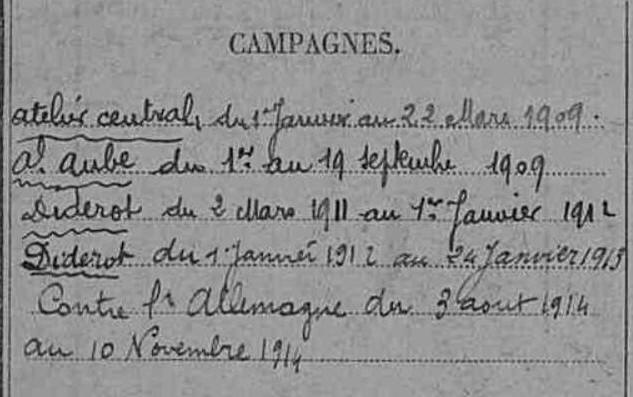 CAMPAGNES.
atelier central, du 1er Janvier au 22 Mars 1909.
al. aube du 1er au 19 septembre 1909
Diderot du 2 Mars 1911 au 1er Janvier 1912
Diderot du 1 Janvier 1912 au 24 Janvier 1913
Contre l'Allemagne du 3 aout 1914
au 10 Novembre 1914